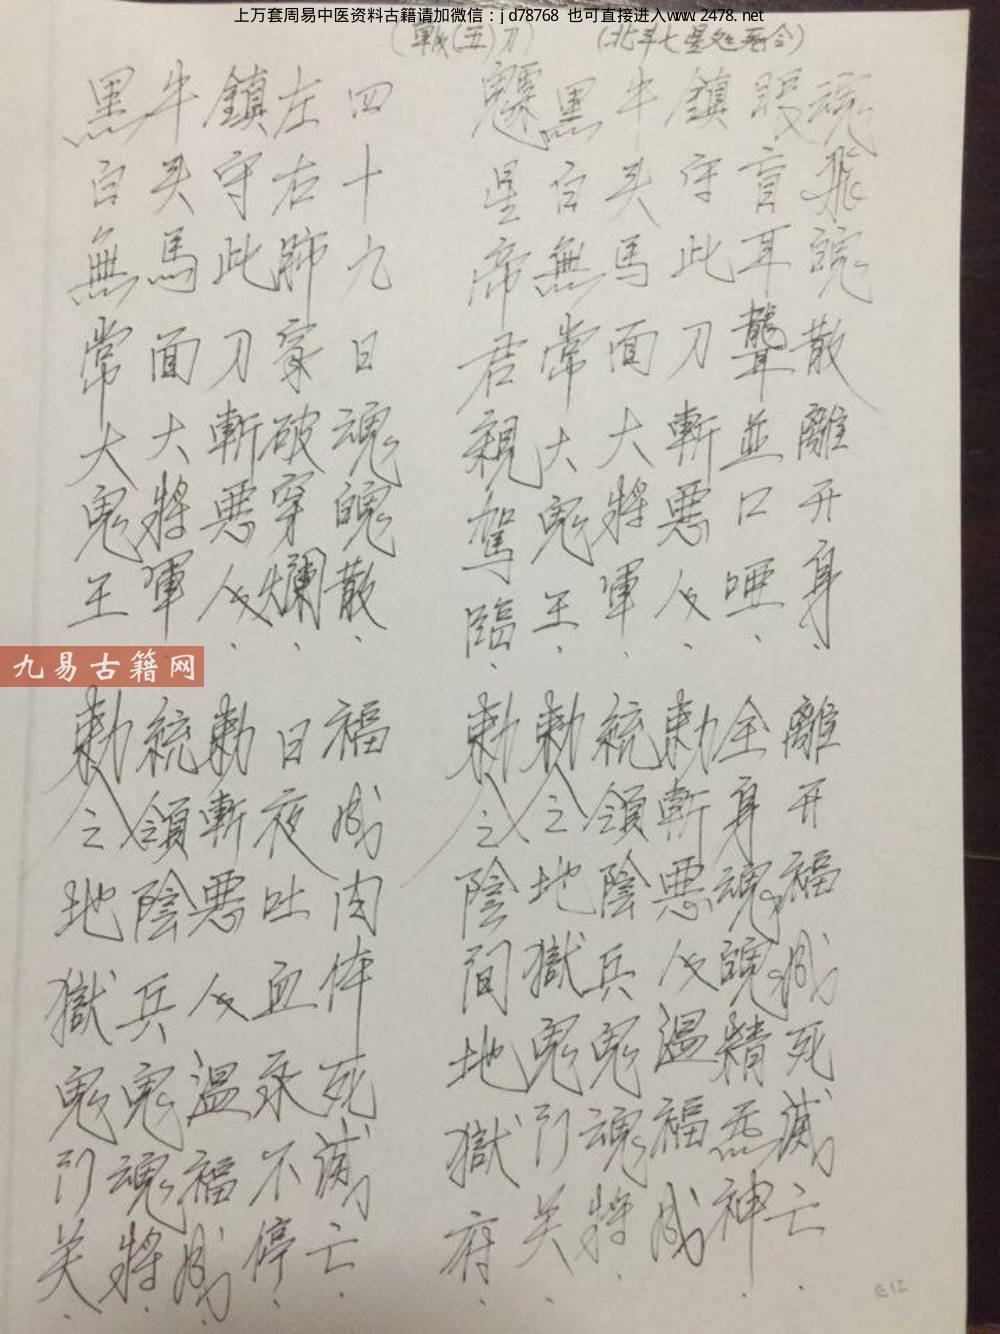 上万套周易中医资料古籍请加微信：jd78768 也可直接进入www.2478.net
(五)刀
黑白無常大鬼王.敕令地獄鬼門关.
牛头馬面大將軍.統領陰兵鬼魂將.
鎮守此刀斬悪人.敕斬悪人溫福成.
左右肺 破穿爛.日夜吐血永不停.
四十九日魂魄散.福成肉体死滅亡.
(北斗七星処死令)
星帝君親駕臨.敕令陰間地獄府.
黑白無常大鬼王.敕令地獄鬼門关.
牛头馬面大將軍.統領陰兵鬼魂將.
鎮守此刀斬悪人.敕斬悪人溫福成.
眼盲耳聾並口唖.全身魂魄精炁神.
魂飛魄散離开身.離开福成死滅亡.
九易古籍网